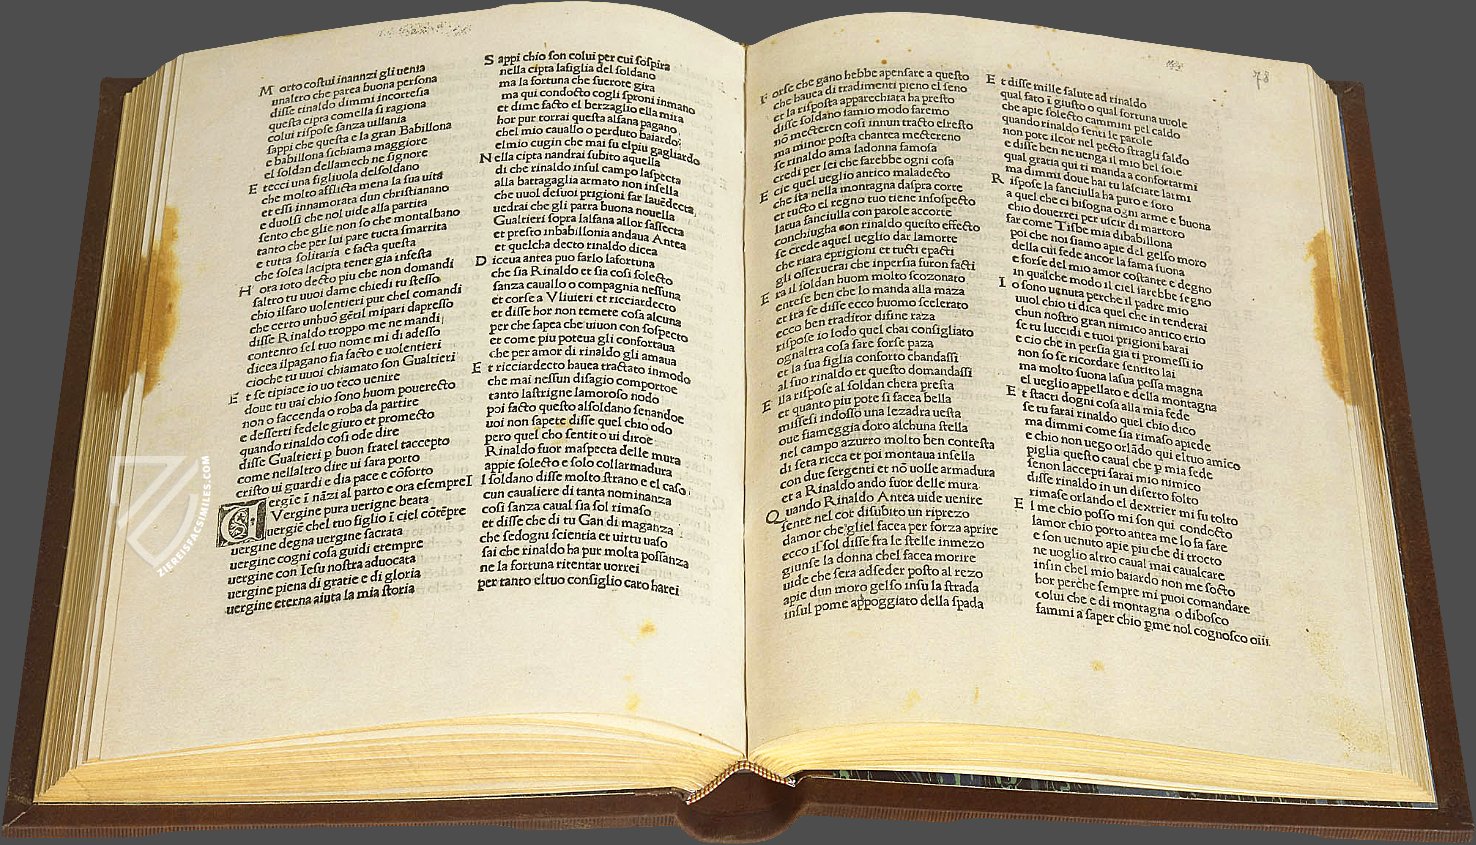 M orto costui inannzi gli uenia
unaltro che parea buona persona
disse rinaldo dimmi incortesia
questa cipra comella si ragiona
colui rispose sanza uillania
sappi che questa e la gran Babillona
e babillona sichiama maggiore
el soldan dellamech ne signore
E tecci una figliuola delsoldano
che molto afflicta mena la sua uita
et essi innamorata dun christianano
e duolsi che nol uide alla partita
sento che glie non so che montalbano
tanto che per lui pare tucta smarrita
e tutta solitaria e facta questa
che solea lacipta tener gia infesta
H ora ioto decto piu che non domandi
saltro tu uuoi dame chiedi tu stesso
chio ilfaro uolentieri pur chel comandi
che certo unhuō gētil mipari dapresso
disse Rinaldo troppo me ne mandi
contento sel tuo nome mi di adesso
dicea ilpagano fia facto e uolentieri
cioche tu uuoi chiamato son Gualtieri
E t se tipiace io uo teco uenire
doue tu uai chio sono huom pouerecto
non o faccenda o roba da partire
e desserti fedele giuro et promecto
quando rinaldo cosi ode dire
disse Gualtieri p buon fratel taccepto
come nellaltro dire ui sara porto
cristo ui guardi e dia pace e cōforto
U ergie ī nāzi al parto e ora esempre
Vergine pura uerigne beata
uergiē chel tuo figlio ī ciel cōtēpre
uergine degna uergine sacrata
uergine cogni cosa guidi etempre
uergine con Iesu nostra aduocata
uergine piena di gratie e di gloria
uergine eterna aiuta la mia storia
S appi chio son colui per cui sospira
nella cipta lafiglia del soldano
ma la fortuna che suerote gira
ma qui condocto cogli sproni inmano
et dime facto el berzaglio ella mira
hor pur torrai questa alfana pagano
chel mio cauallo o perduto baiardo
elmio cugin che mai fu elpiu gagliardo
N ella cipta nandrai subito aquella
di che rinaldo insul campo laspecta
alla battagaglia armato non insella
che uuol desuoi prigioni far lauēdecta
uedrai che gli parra buona nouella
Gualtieri sopra lalfana allor sassecta
et presto inbabillonia andaua Antea
et quelcha decto rinaldo dicea
D iceua antea puo farlo lafortuna
che sia Rinaldo et sia cosi solecto
sanza cauallo o compagnia nessuna
et corse a Vliuieri et ricciardecto
et disse hor non temere cosa alcuna
per che sapea che uiuon con sospecto
et come piu poteua gli confortaua
che per amor di rinaldo gli amaua
E t ricciardecto hauea tractato inmodo
che mai nessun disagio comportoe
tanto lastrigne lamoroso nodo
poi facto questo alsoldano senandoe
uoi non sapete disse quel chio odo
pero quel cho sentito ui diroe
Rinaldo fuor maspecta delle mura
appie solecto e solo collarmadura
I lsoldano disse molto strano e el caso
cun caualiere di tanta nominanza
cosi sanza caual sia sol rimaso
et disse che di tu Gan di maganza
che sedogni scientia et uirtu uaso
sai che rinaldo ha pur molta possanza
ne la fortuna ritentar uorrei
per tanto eltuo consiglio caro harei
78
F orse che gano hebbe apensare a questo
che hauea di tradimenti pieno el seno
et la risposta apparechiata ha presto
disse soldano iamio modo faremo
nō mecteren cosi innun tracto elresto
ma minor posta chantea mectereno
se rinaldo ama ladonna famosa
credi per lei che farebbe ogni cosa
E cie quel ueglio antico maladecto
che sta nella montagna daspra corte
et tucto el regno tuo tiene insospecto
latua fanciulla con parole accorte
conchiugha con rinaldo questo effecto
se crede aquel ueglio dar lamorte
che riara eprigioni et tucti epacti
gli osseruerai che inpersia furon facti
E ra il soldan huom molto scozonato
entese ben che lo manda alla maza
et ira se disse ecco huomo scelerato
ecco ben traditor difine raza
rispose io lodo quel chai consigliato
ognaltra cosa fare forse paza
et la sua figlia conforto chandassi
al suo rinaldo et questo domandassi
E lla rispose al soldan chera presta
et quanto piu pote si facea bella
missesi indosso una lezadra uesta
oue fiameggia doro alchuna stella
nel campo azurro molto ben contesta
di seta ricca et poi montaua insella
con due sergenti et nō uolle armadura
et a Rinaldo ando fuor delle mura
Q uando Rinaldo Antea uide uenire
sente nel cor disubito un riprezo
damor che gliel facea per forza aprire
ecco il sol disse fra le stelle inmezo
giunse la donna chel facea morire
uide che sera adseder posto al rezo
apie dun moro gelso insu la strada
insul pome appoggiato della spada
E t disse mille salute ad rinaldo
qual fato ī giusto o qual fortuna uuole
che apie solecto cammini pel caldo
quando rinaldo senti le parole
non pote ilcor nel pecto stragli saldo
e disse ben ne uenga il mio bel sole
qual gratia qui ti manda a confortarmi
ma dimmi doue hai tu lasciate larmi
R ispose la fanciulla ha puro e soro
a quel che ci bisogna ogni arme e buona
chio douerrei per uscir di martoro
far come Tisbe mia dibabillona
poi che noi siamo apie del gelso moro
della cui fede ancor la fama suona
e forse del mio amor costante e degno
in qualche modo il ciel farebbe segno
I o sono uenuta perche il padre mio
uuol chio ti dica quel che in tenderai
chun nostro gran nimico antico erio
se tu luccidi e tuoi prigioni harai
e cio che in persia gia ti promessi io
non so se ricordare sentito lai
ma molto suona lasua possa magna
el ueglio appellato e della montagna
E t stacti dogni cosa alla mia fede
se tu farai rinaldo quel chio dico
ma dimmi come sia rimaso apiede
e chio non uego orlādo qui eltuo amico
piglia questo caual che p mia fede
senon laccepti farai mio nimico
disse rinaldo in un diserto folto
rimase orlando el dextrier mi fu tolto
E l me chio posso mi son qui condocto
lamor chio porto antea me lo fa fare
e son uenuto apie piu che di trocto
ne uoglio altro caual mai caualcare
infin chel mio baiardo non me socto
hor perche sempre mi puoi comandare
colui che e di montagna o dibosco
fammi a saper chio pme nol cognosco oiii.
ZIEREISFACSIMILES.COM